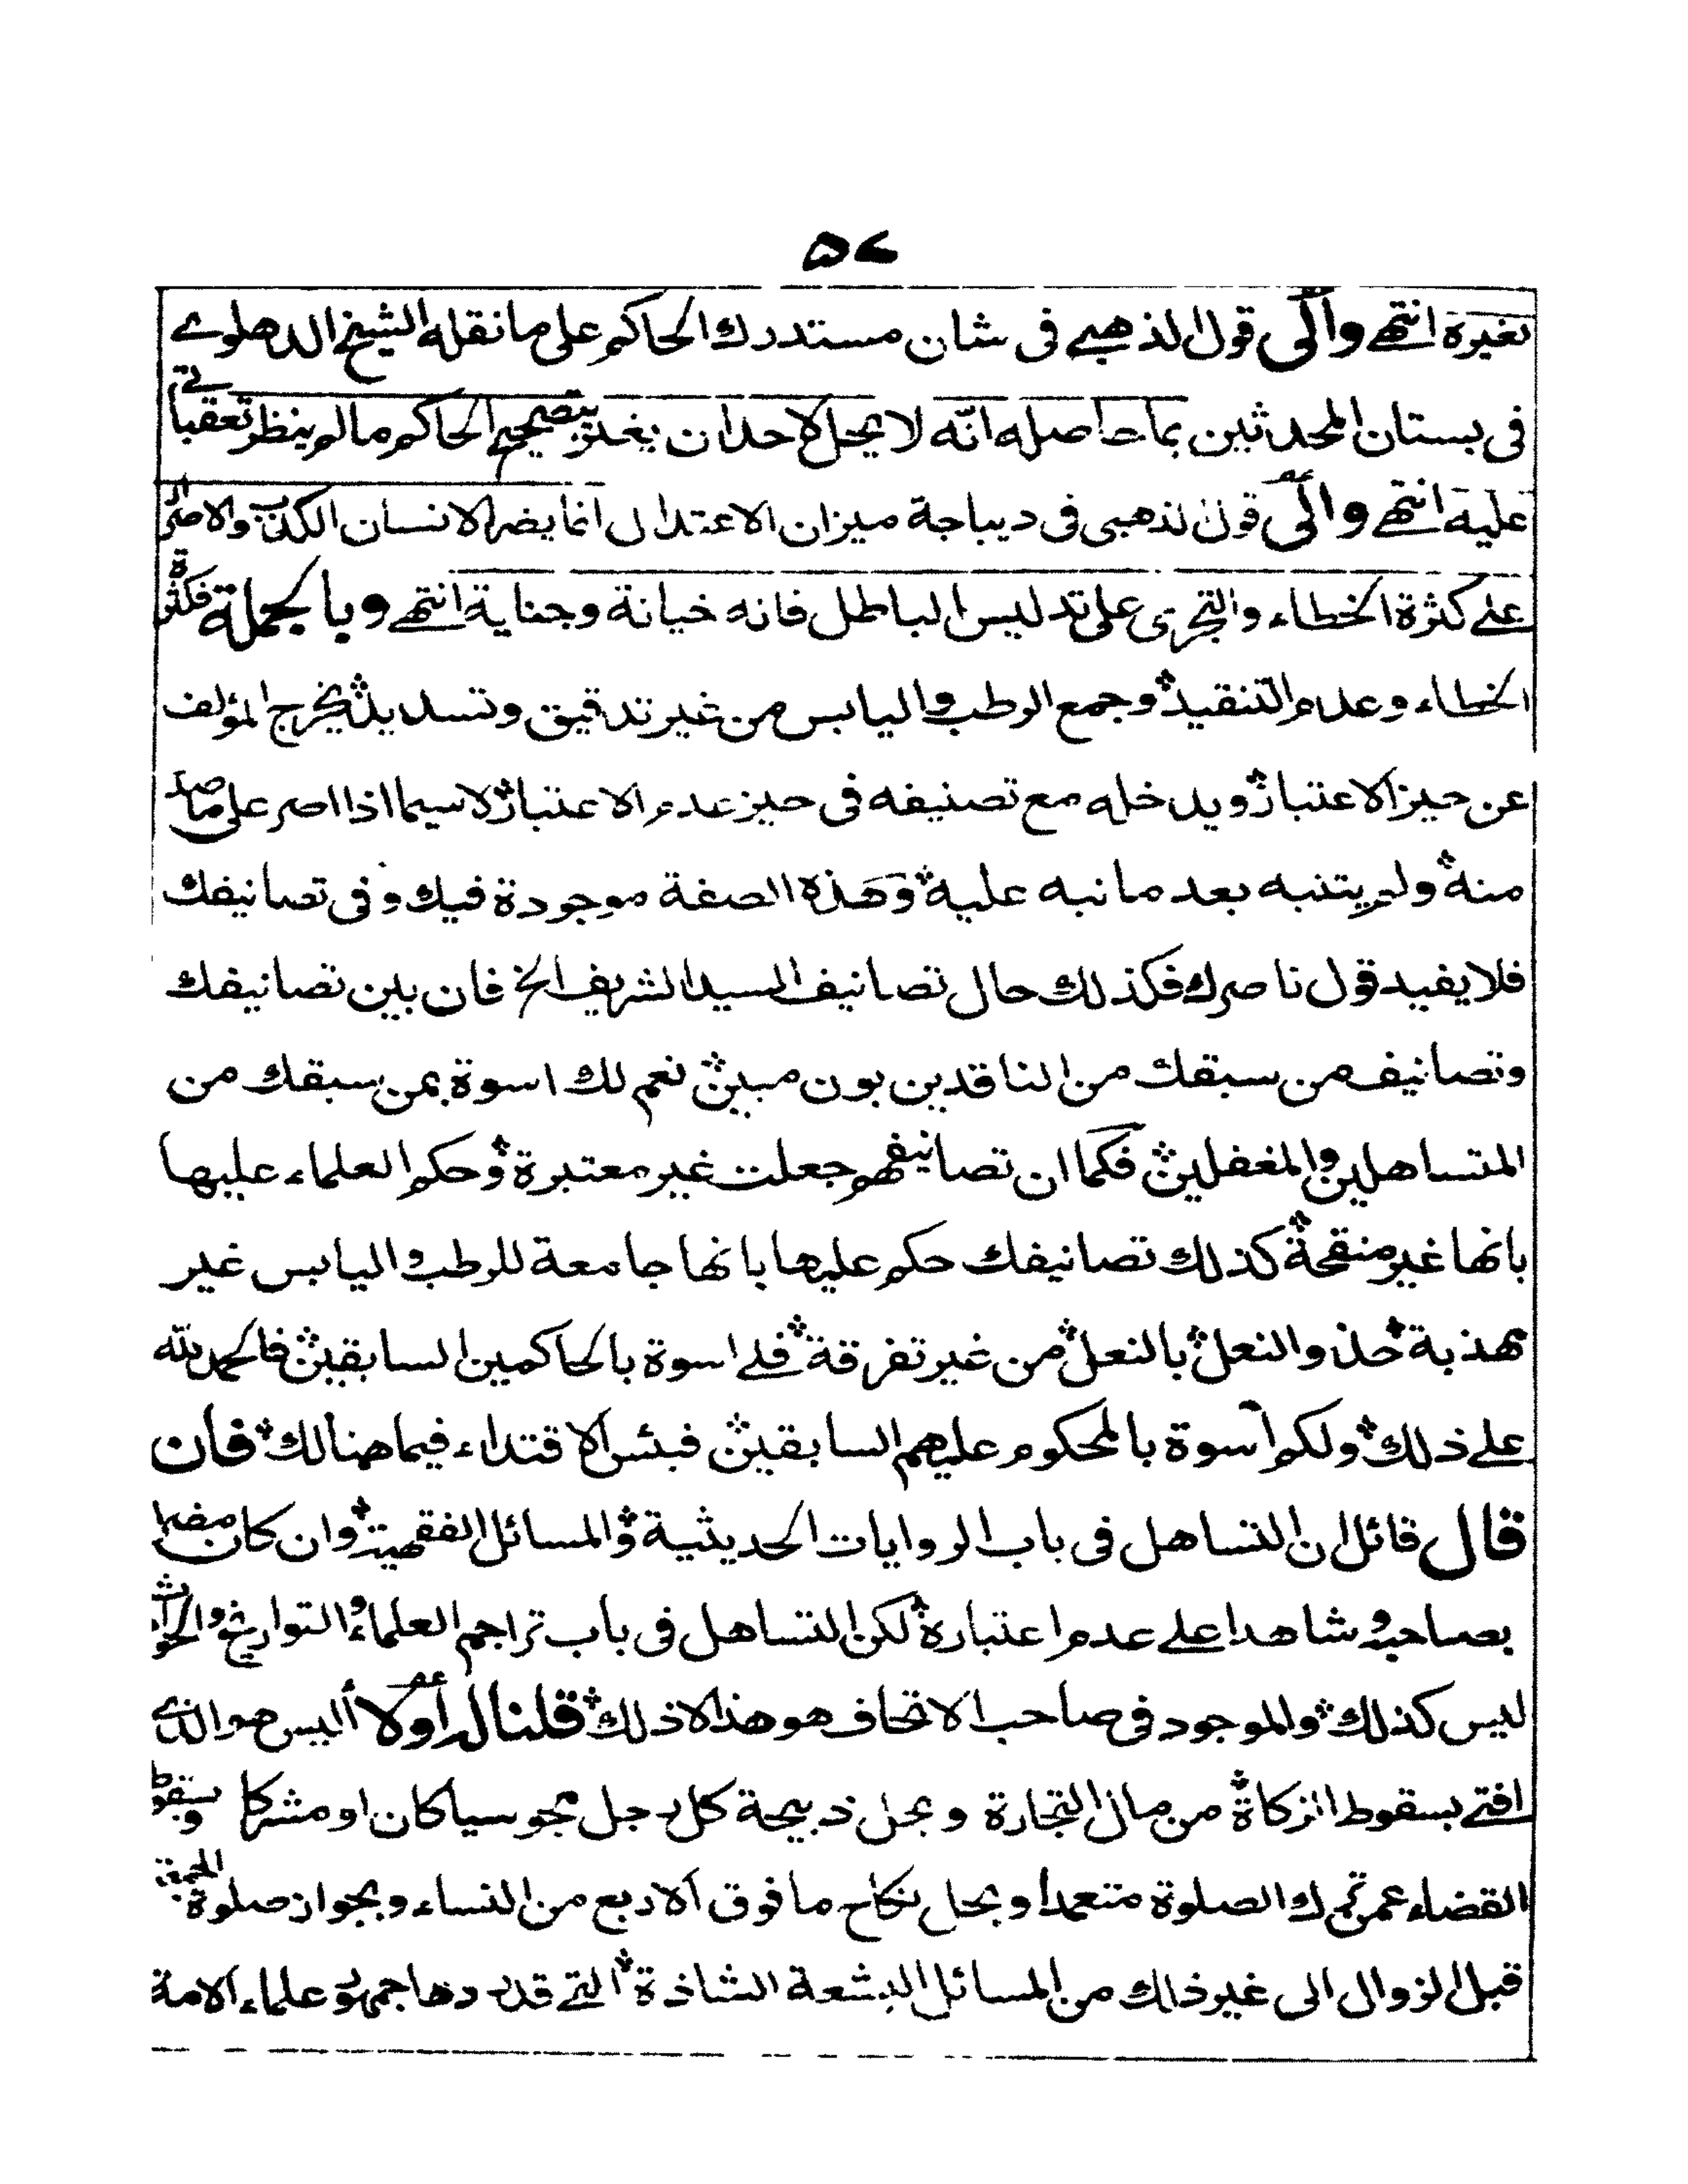 ۵۷
بغيره انتهى والى قول الذهبى فى شان مستدرك الحاكم على ما نقله الشيخ الدهلوى
فى بستان المحدثين بما حاصله انّه لا يحل لاحد ان يغتر بتصحيح الحاكم ما لم ينظر تعقباتى
عليه انتهى والى قول الذهبى فى ديباجة ميزان الاعتدال انما يضر الانسان الكذب والاصرار
على كثرة الخطاء والتجرى على تدليس الباطل فانه خيانة وجناية انتهى وبالجملة فكثرة
الخطاء وعدم التنقيد وجمع الرطب واليابس من غير تدقيق وتسديد يخرج المؤلف
عن حيز الاعتبار ويدخله مع تصنيفه فى حيز عدم الاعتبار لا سيما اذا اصر على ما صدر
منه ولم يتنبه بعد ما نبه عليه وهذه الصفة موجودة فيك وفى تصانيفك
فلا يفيد قول ناصرك فكذلك حال تصانيف السيد الشريف الخ فان بين تصانيفك
وتصانيف من سبقك من الناقدين بون مبين نعم لك اسوة بمن سبقك من
المتساهلين والمغفلين فكما ان تصانيفهم جعلت غير معتبرة وحكم العلماء عليها
بانها غير منقحة كذلك تصانيفك حكم عليها بانها جامعة للرطب واليابس غير
مهذبة حذو النعل بالنعل من غير تفرقة فلى اسوة بالحاكمين السابقين فالحمد لله
على ذلك ولكم اسوة بالمحكوم عليهم السابقين فبئس الاقتداء فيما هنالك فان
قال قائل ان التساهل فى باب الروايات الحديثية والمسائل الفقهية وان كان مضرا
بصاحبه وشاهدا على عدم اعتباره لكن التساهل فى باب تراجم العلماء والتواريخ والحوادث
ليس كذلك والموجود فى صاحب الاتحاف هو هذا لا ذلك قلنا له أولا أليس هو الذى
افتى بسقوط الزكاة من مال التجارة وبحل ذبيحة كل رجل مجوسيا كان او مشركا وبسقوط
القضاء عمن ترك الصلوة متعمدا وبحل نكاح ما فوق الاربع من النساء وبجواز صلوة الجمعة
قبل الزوال الى غير ذلك من المسائل البشعة الشاذة التى قد ردها جمهور علماء الامة